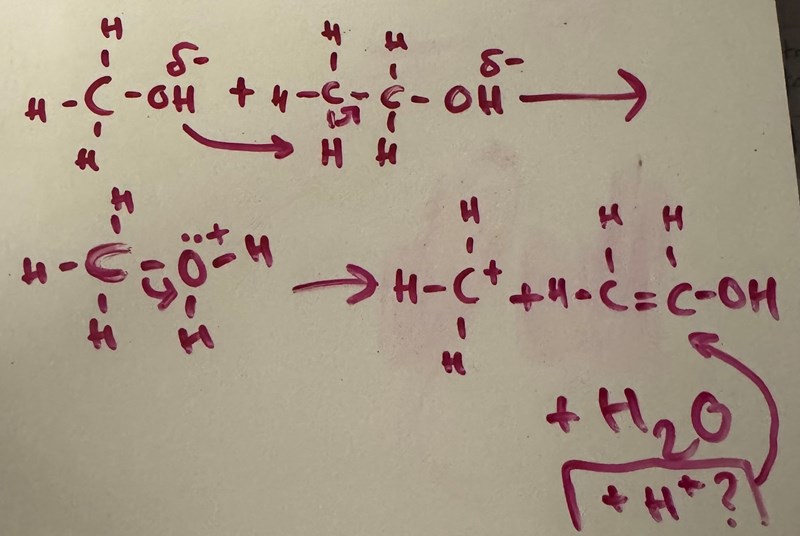 H H H
δ- δ-
H - C - OH + H - C - C - OH →
H H H
H H H
H - C - O̤ + - H → H - C+ + H - C = C - OH
H H H
+ H2O
+ H+ ?